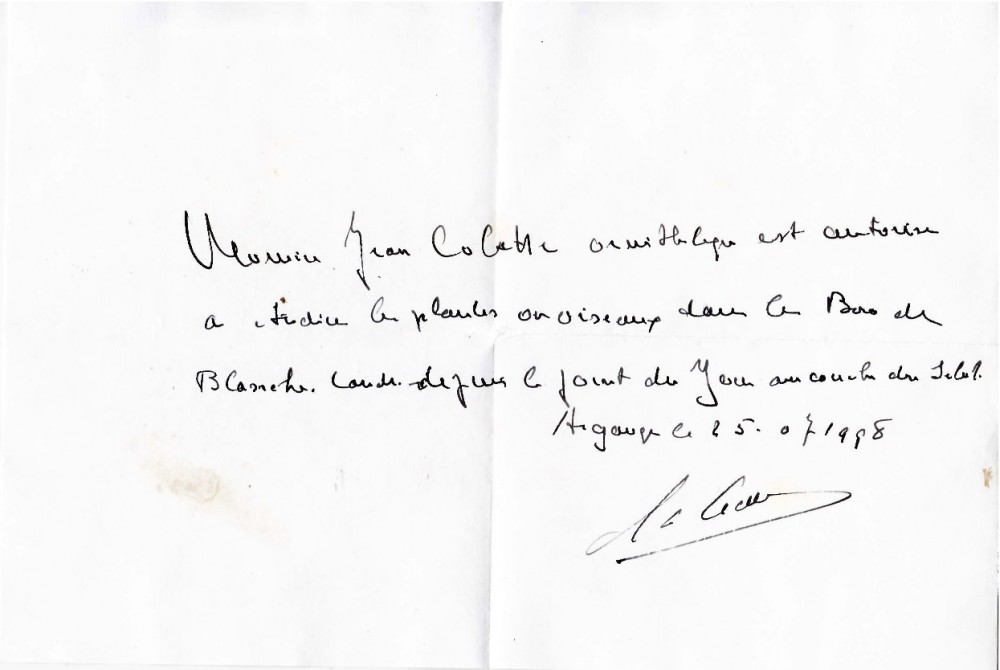 Monsieur Jean Colette ornithologue est autorisé
a étudier les plantes ou oiseaux dans le Bois de
Blanche Lande depuis le point du Jour au couché du Soleil.
le 25. 07 1998